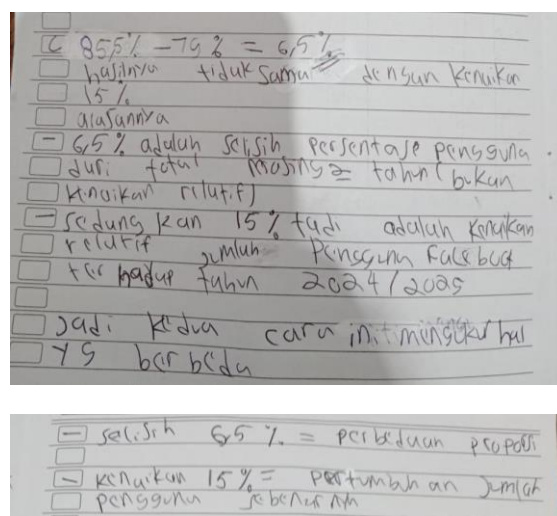 C 85,5% - 79% = 6,5%
hasilnya tidak sama dengan kenaikan
15%
alasannya
- 6,5% adalah selisih persentase pengguna
dari total masing2 tahun (bukan
kenaikan relatif)
- sedangkan 15% tadi adalah kenaikan
relatif jumlah pengguna facebook
terhadap tahun 2024/2025
Jadi kedua cara ini mengukur hal
yg berbeda
- selisih 6,5% = perbedaan proporsi
- kenaikan 15% = pertumbuhan jumlah
pengguna sebenarnya